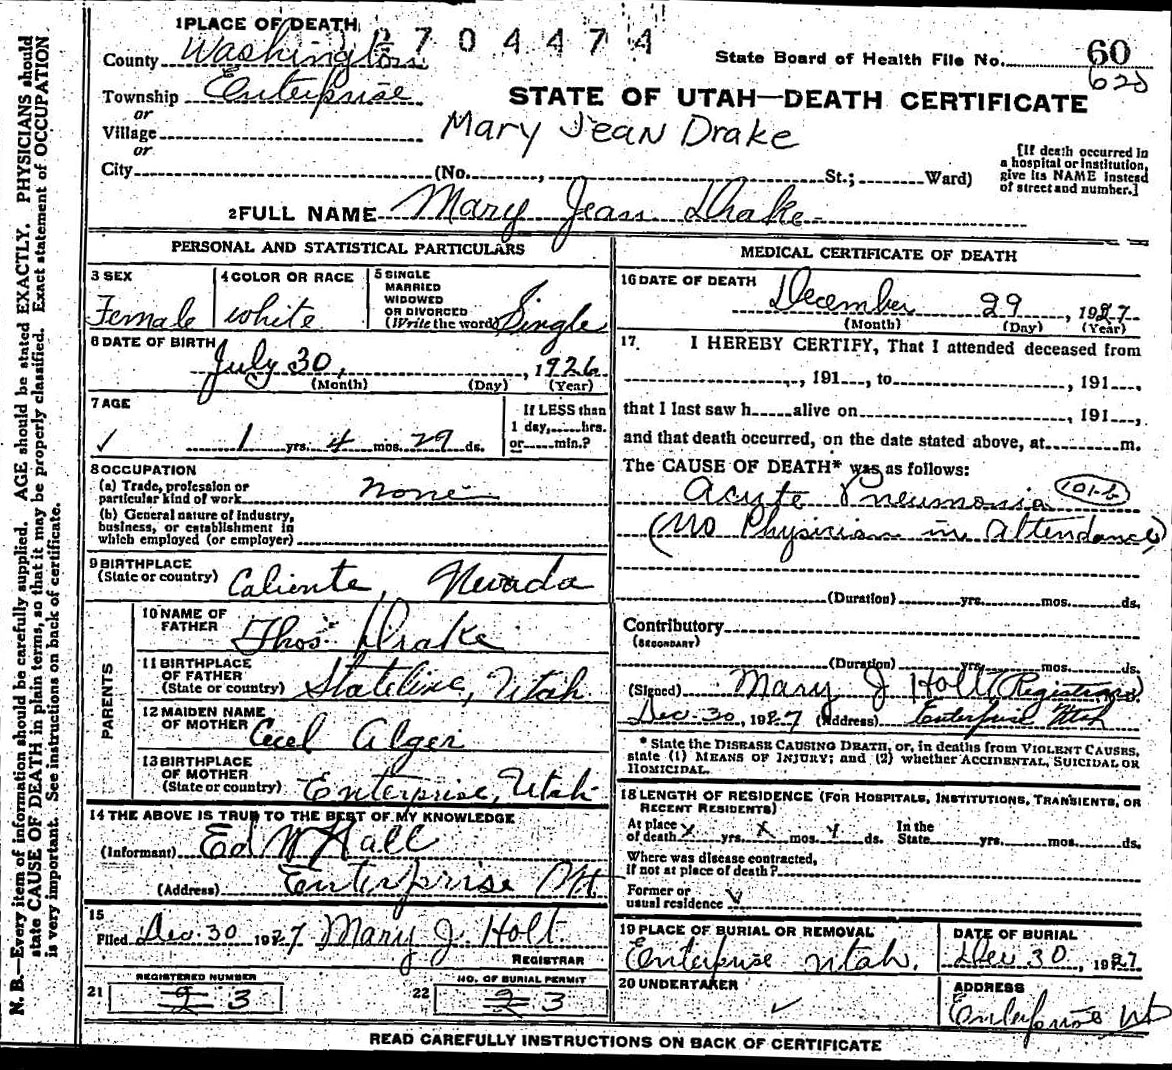 N. B.—Every item of information should be carefully supplied. AGE should be stated EXACTLY. PHYSICIANS should
state CAUSE OF DEATH in plain terms, so that it may be properly classified. Exact statement of OCCUPATION
is very important. See instructions on back of certificate.
1 PLACE OF DEATH
704474
County Washington
State Board of Health File No. 60
Township Enterprise
or
STATE OF UTAH—DEATH CERTIFICATE
Village
Mary Jean Drake
or
City (No. , St.; Ward)
[If death occurred in
a hospital or institution,
give its NAME instead
of street and number.]
2 FULL NAME Mary Jean Drake
PERSONAL AND STATISTICAL PARTICULARS
3 SEX
Female
4 COLOR OR RACE
white
5 SINGLE
MARRIED
WIDOWED
OR DIVORCED
(Write the word) Single
6 DATE OF BIRTH
July 30, , 1926
(Month) (Day) (Year)
7 AGE
1 yrs. 4 mos. 29 ds.
If LESS than
1 day, hrs.
or min.?
8 OCCUPATION
(a) Trade, profession or
particular kind of work none
(b) General nature of industry,
business, or establishment in
which employed (or employer)
9 BIRTHPLACE
(State or country) Caliente, Nevada
PARENTS
10 NAME OF
FATHER Thos. Drake
11 BIRTHPLACE
OF FATHER
(State or country) Stateline, Utah
12 MAIDEN NAME
OF MOTHER Cecel Alger
13 BIRTHPLACE
OF MOTHER
(State or country) Enterprise, Utah
14 THE ABOVE IS TRUE TO THE BEST OF MY KNOWLEDGE
(Informant) Ed W Hall
(Address) Enterprise Ut
15
Filed Dec 30 1927 Mary J. Holt
REGISTRAR
REGISTERED NUMBER
21 2 3
NO. OF BURIAL PERMIT
22 2 3
MEDICAL CERTIFICATE OF DEATH
16 DATE OF DEATH
December 29 , 1927
(Month) (Day) (Year)
17. I HEREBY CERTIFY, That I attended deceased from
, 191 , to , 191 ,
that I last saw h alive on , 191 ,
and that death occurred, on the date stated above, at m.
The CAUSE OF DEATH* was as follows:
Acute Pneumonia 101-b
(No Physician in Attendance)
(Duration) yrs. mos. ds.
Contributory
(SECONDARY)
(Duration) yrs. mos. ds.
(Signed) Mary J Holt (Registrar)
Dec 30, 1927 (Address) Enterprise Utah
* State the DISEASE CAUSING DEATH, or, in deaths from VIOLENT CAUSES,
state (1) MEANS OF INJURY; and (2) whether ACCIDENTAL, SUICIDAL OR
HOMICIDAL.
18 LENGTH OF RESIDENCE (FOR HOSPITALS, INSTITUTIONS, TRANSIENTS, OR
RECENT RESIDENTS)
At place
of death yrs. mos. ds. In the
State yrs. mos. ds.
Where was disease contracted,
if not at place of death?
Former or
usual residence
19 PLACE OF BURIAL OR REMOVAL
Enterprise Utah.
DATE OF BURIAL
Dec 30 , 1927
20 UNDERTAKER
ADDRESS
Enterprise Ut
READ CAREFULLY INSTRUCTIONS ON BACK OF CERTIFICATE